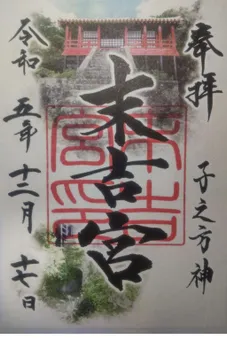 奉拝
子之方神
末吉宮
令和五年十二月十七日